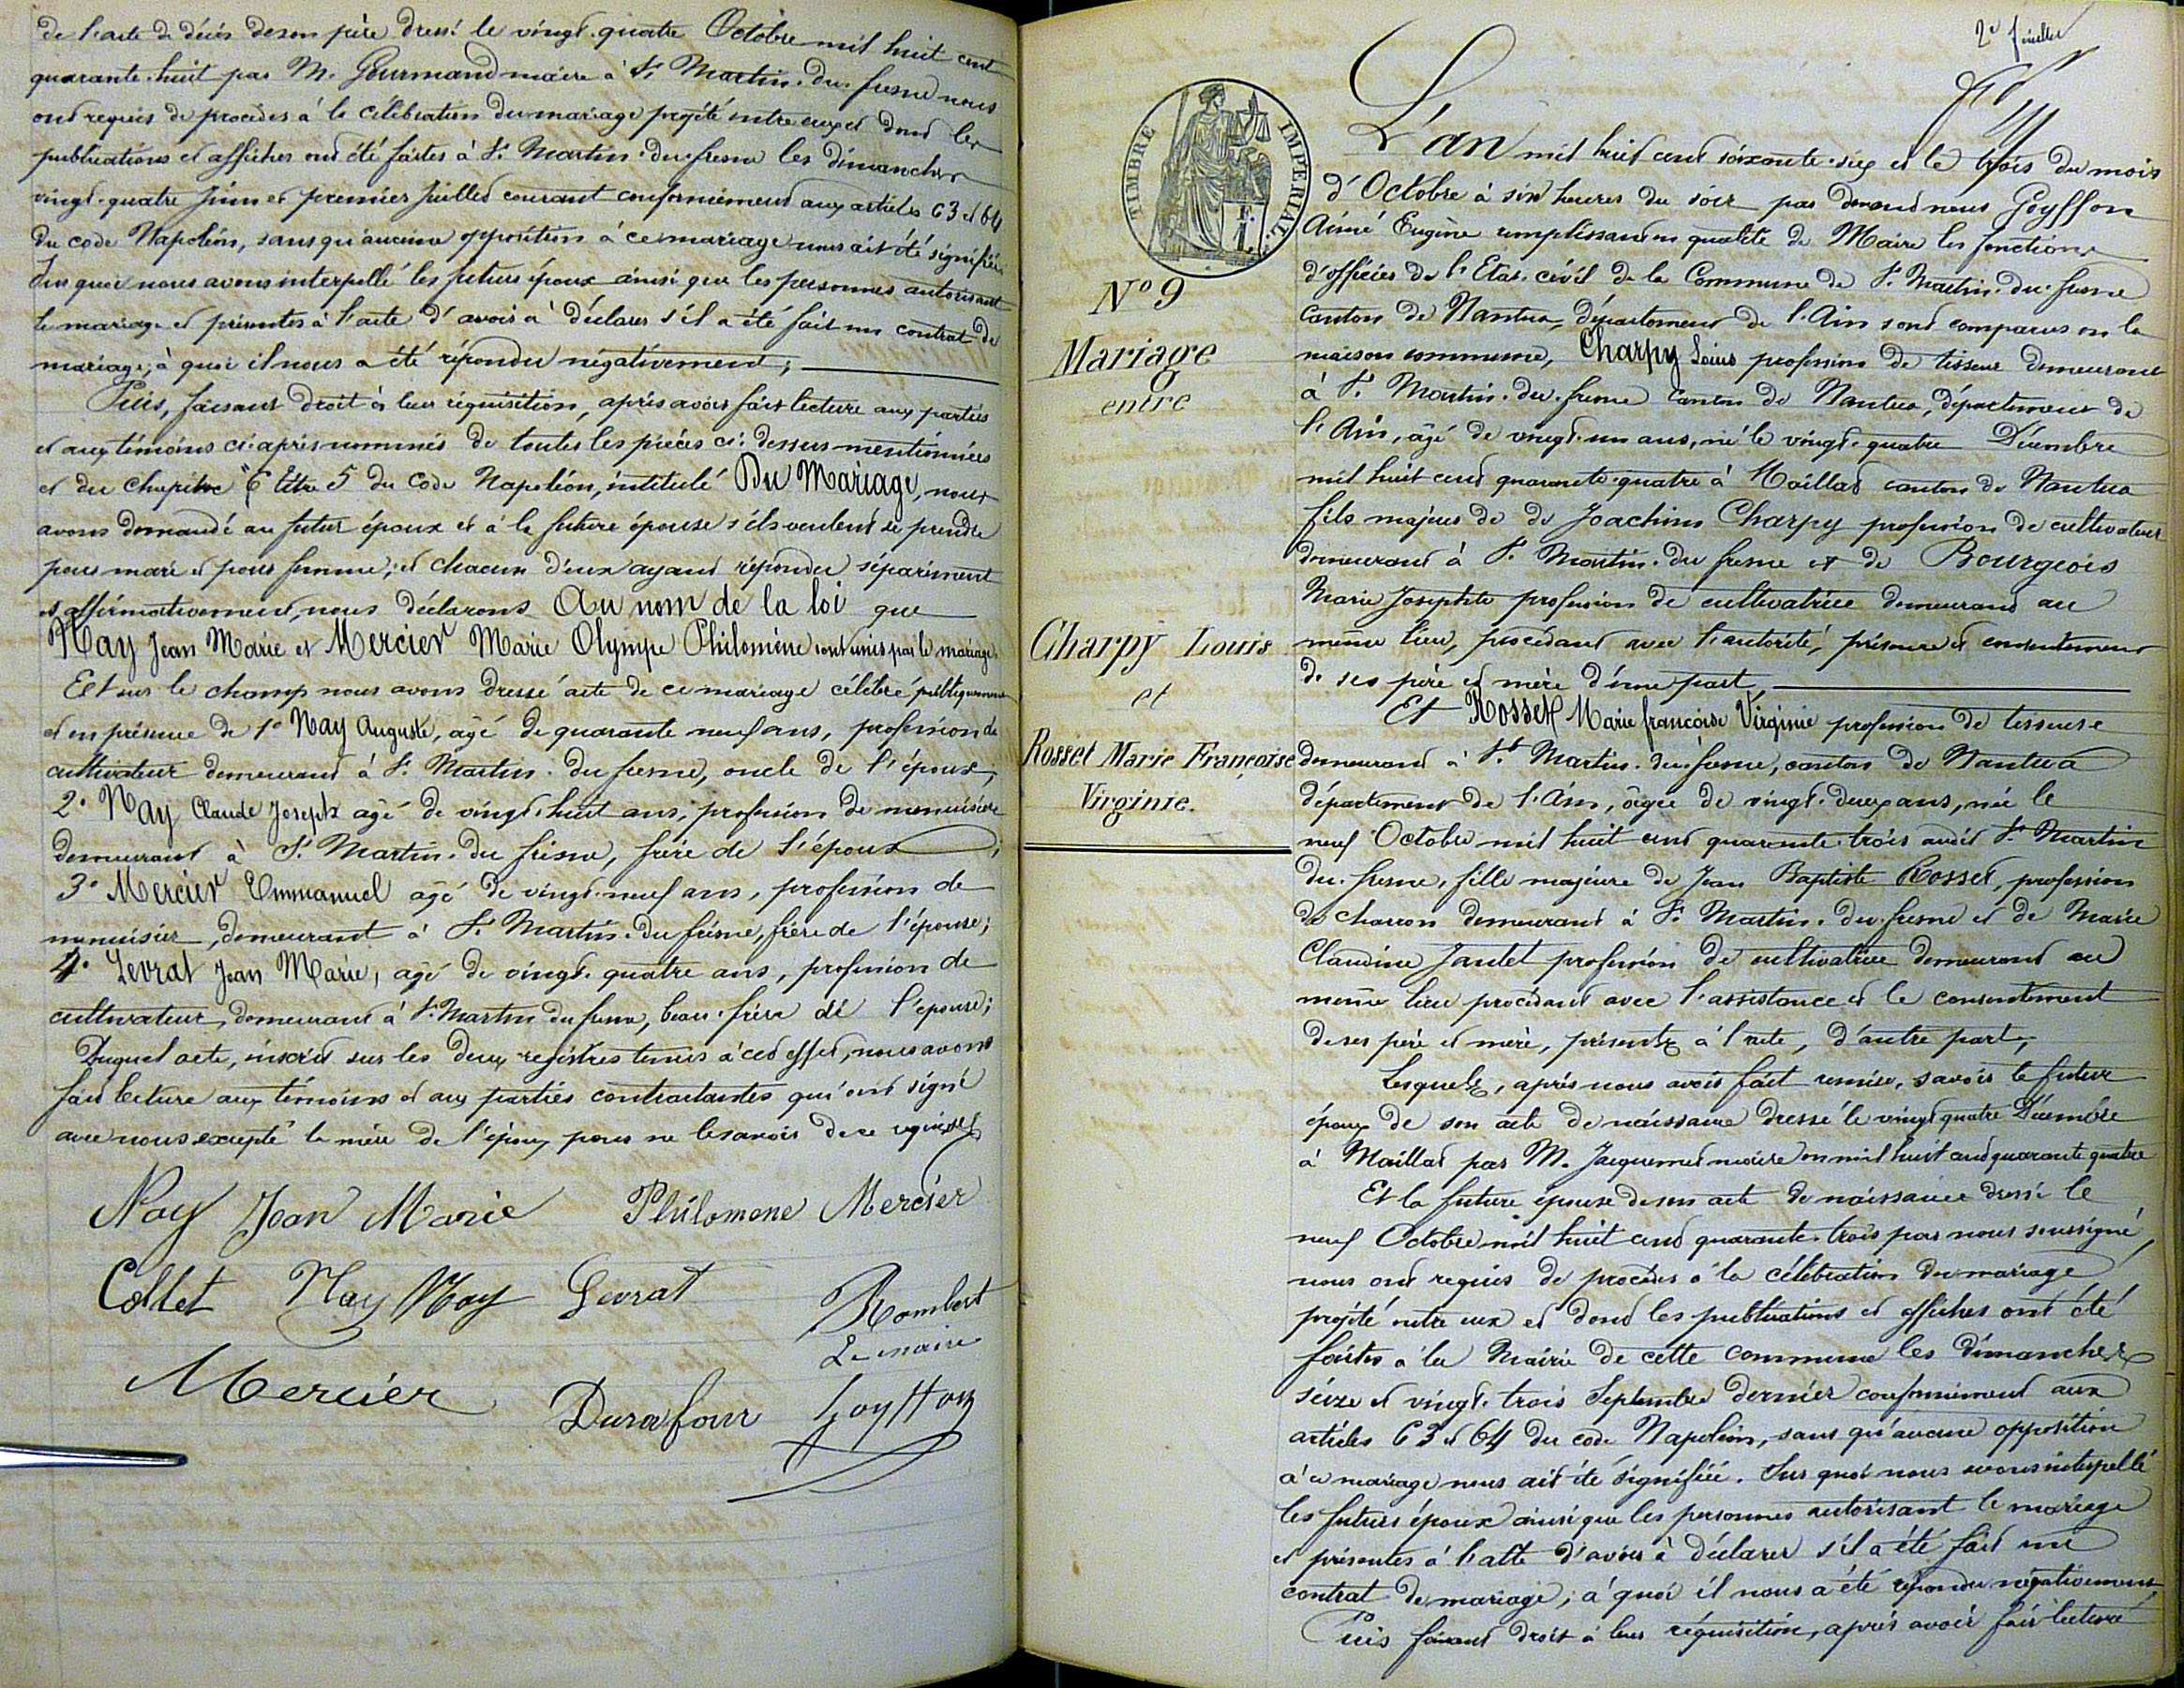 de l'acte de décès de son père dressé le vingt-quatre Octobre mil huit cent
quarante-huit par M. Gourmand maire à St Martin-du-fresne nous
ont requis de procéder à la célébration du mariage projété entre eux et dont les
publications et affiches ont été faites à St Martin-du-fresne les dimanches
vingt-quatre Juin et premier Juillet courant conformément aux articles 63 et 64
du code Napoléon, sans qu'aucune opposition à ce mariage nous ait été signifiée
Sur quoi nous avons interpellé les futurs époux ainsi que les personnes autorisant
le mariage et présentes à l'acte d'avoir à déclarer s'il a été fait un contrat de
mariage; à quoi il nous a été répondu négativement;
Puis, faisant droit à leur réquisition, après avoir fait lecture aux parties
et aux témoins ci-après nommés de toutes les pièces ci-dessus mentionnées
et du chapitre 6 titre 5 du Code Napoléon, intitulé Du Mariage, nous
avons demandé au futur époux et à la future épouse s'ils veulent se prendre
pour mari et pour femme; et chacun d'eux ayant répondu séparément
et affirmativement, nous déclarons Au nom de la loi que
Nay Jean Marie et Mercier Marie Olympe Philomène sont unis par le mariage.
Et sur le champ nous avons dressé acte de ce mariage célébré publiquement
et en présence de 1° Nay Auguste, agé de quarante neuf ans, profession de
cultivateur demeurant à St Martin-du fresne, oncle de l'époux;
2° Nay Claude Joseph agé de vingt-huit ans, profession de menuisier
demeurant à St Martin-du fresne, frère de l'époux;
3° Mercier Emmanuel agé de vingt-neuf ans, profession de
menuisier, demeurant à St Martin-du fresne, frère de l'épouse;
4° Levrat Jean Marie, agé de vingt-quatre ans, profession de
cultivateur, demeurant à St Martin du fresne, beau-frère de l'épouse;
Duquel acte, inscrit sur les deux registres tenus à cet effet, nous avons
fait lecture aux témoins et aux parties contractantes qui ont signé
avec nous excepté la mère de l'époux pour ne le savoir de ce requises
Nay Jean Marie Philomene Mercier
Collet Nay Nay Levrat Rombert
Le maire
Mercier Durafour Goyffon
2e feuillet
TIMBRE IMPERIAL.
N° 9
Mariage
entre
Charpy Louis
et
Rosset Marie Françoise
Virginie.
L'an mil huit cent soixante-six et le trois du mois
d'Octobre à six heures du soir par devant nous Goyffon
Aimé Eugène remplissant en qualité de Maire les fonctions
d'officier de l'Etat-civil de la Commune de St Martin-du-fresne
canton de Nantua, département de l'Ain sont comparus en la
maison commune, Charpy Louis profession de tisseur demeurant
à St Martin-du-fresne canton de Nantua, département de
l'Ain, agé de vingt-un ans, né le vingt-quatre Décembre
mil huit cent quarante-quatre à Maillat canton de Nantua
fils majeur de de Joachim Charpy profession de cultivateur
demeurant à St Martin-du fresne et de Bourgeois
Marie Josephte profession de cultivatrice demeurant au
même lieu, procédant avec l'autorité, présence et consentement
de ses père et mère d'une part
Et Rosset Marie françoise Virginie profession de tisseuse
demeurant à St Martin-du-fresne, canton de Nantua
département de l'Ain, âgée de vingt-deux ans, née le
neuf Octobre mil huit cent quarante-trois audit St Martin
du-fresne, fille majeure de Jean Baptiste Rosset, profession
de charron demeurant à St Martin-du-fresne et de Marie
Claudine Jantet profession de cultivatrice demeurant au
même lieu procédant avec l'assistance et le consentement
de ses père et mère, présents à l'acte, d'autre part,
Lesquels, après nous avoir fait remise, savoir le futur
époux de son acte de naissance dressé le vingt quatre Décembre
à Maillat par M. Jacquemet maire en mil huit cent quarante quatre
Et la future épouse de son acte de naissance dressé le
neuf Octobre mil huit cent quarante-trois par nous soussigné,
nous ont requis de procéder à la célébration du mariage
projété entre eux et dont les publications et affiches ont été
faites à la Mairie de cette commune les dimanches
seize et vingt-trois Septembre dernier conformément aux
articles 63 et 64 du code Napoléon, sans qu'aucune opposition
à ce mariage nous ait été signifiée. Sur quoi nous avons interpellé
les futurs époux ainsi que les personnes autorisant le mariage
et présentes à l'acte d'avoir à déclarer s'il a été fait un
contrat de mariage; à quoi il nous a été répondu négativement,
Puis faisant droit à leur réquisition, après avoir fait lecture